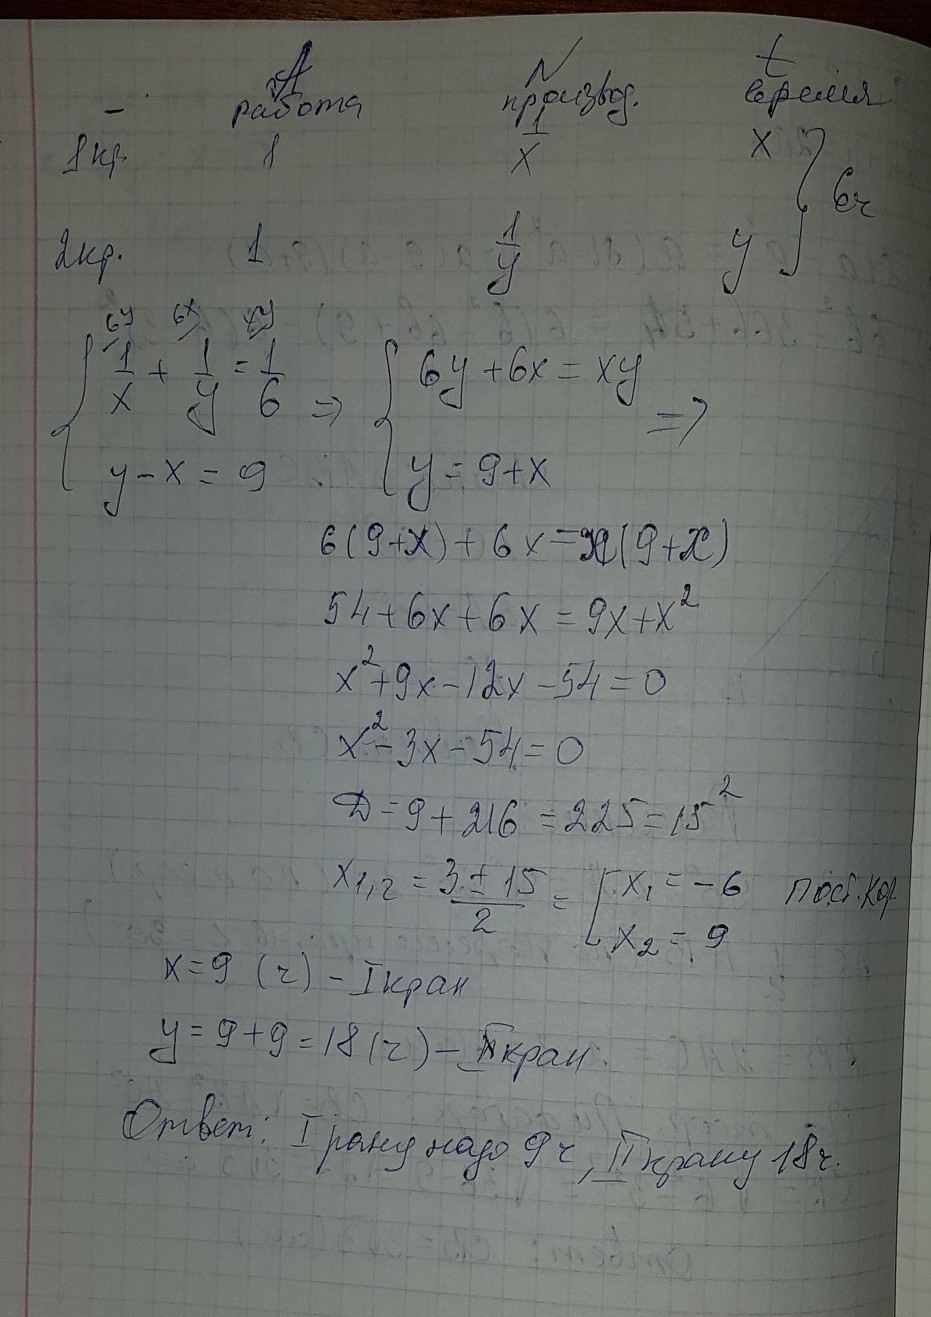 A N t
- работа производ. время
1кр. 1 1/x x
6ч
2кр. 1 1/y y
6y 6x xy
{ 1/x + 1/y = 1/6 => { 6y + 6x = xy =>
y - x = 9 y = 9 + x
6(9+x) + 6x = x(9+x)
54 + 6x + 6x = 9x + x²
x² + 9x - 12x - 54 = 0
x² - 3x - 54 = 0
D = 9 + 216 = 225 = 15²
x1,2 = 3 ± 15 / 2 = [ x1 = -6 пост. кор
x2 = 9
x = 9 (ч) - I кран
y = 9 + 9 = 18 (ч) - II кран
Ответ: I крану надо 9ч, II крану 18ч.